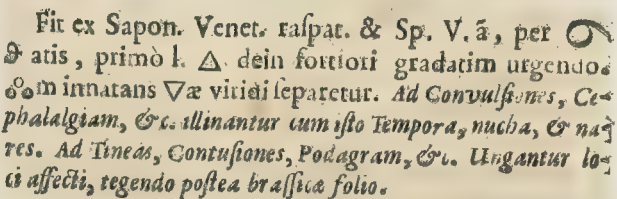 Fit ex Sapon. Venet. raſpat. & Sp. V. ã, per
atis, primò l. 🜂 dein fortiori gradatim urgendo.
m innatans 🜄æ viridi ſeparetur. Ad Convulſiones, Ce-
phalalgiam, &c. illinantur cum iſto Tempora, nucha, & na-
res. Ad Tineas, Contuſiones, Podagram, &c. Ungantur lo-
ci affecti, tegendo poſtea braſſicæ folio.